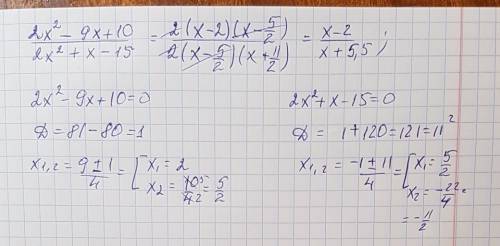 (2x² - 9x + 10)/(2x² + x - 15) = 2(x-2)(x - 5/2)/2(x - 5/2)(x + 11/2) = (x-2)/(x+5,5);
2x² - 9x + 10 = 0
D = 81 - 80 = 1
x₁,₂ = (9 ± 1)/4 = [x₁ = 2
x₂ = 10⁵/4₂ = 5/2
2x² + x - 15 = 0
D = 1 + 120 = 121 = 11²
x₁,₂ = (-1 ± 11)/4 = [x₁ = 5/2
x₂ = -22/4
= -11/2